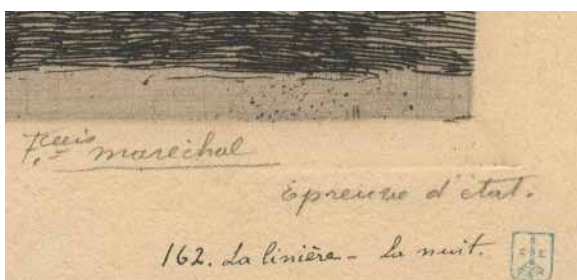 Fçois Maréchal
Epreuve d'état.
162. La linière - la nuit.